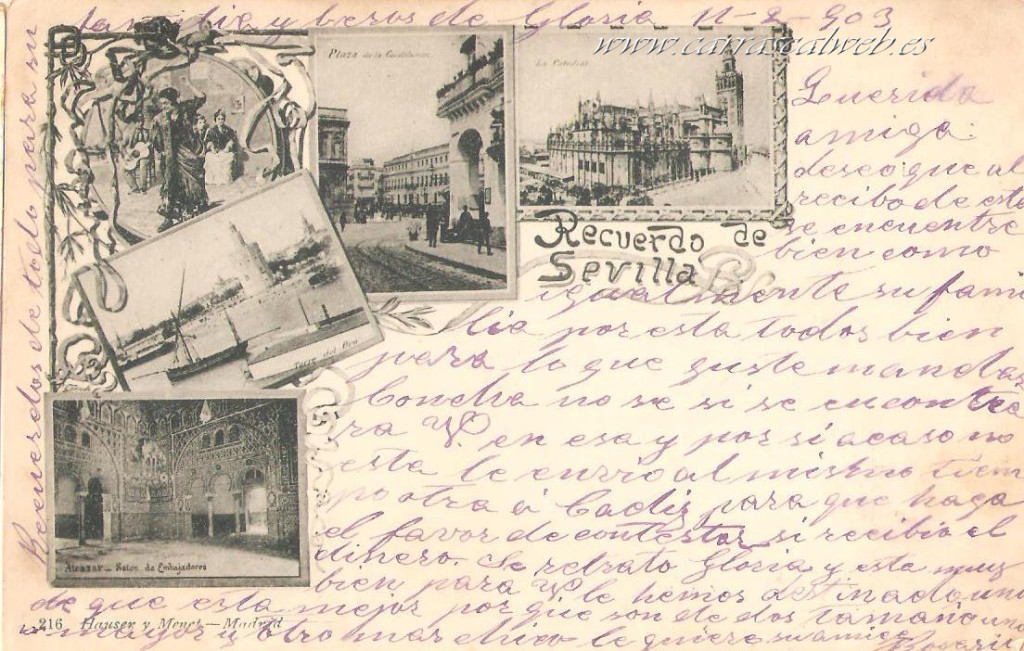 familia y besos de Gloria 11-2-903
www.carrascalweb.es
Recuerdos de todo para su
Plaza de la Constitución
La Catedral
Torre del Oro
Alcazar — Salon de Embajadores
Recuerdo de
Sevilla
Querida
amiga:
deseo que al
recibo de esta
se encuentre
bien como
igualmente su fami
lia por esta todos bien
para lo que guste mandar
Concha no se si se encontra
ra V. en esa y por si acaso no
esta le envio al mismo tiem
po otra á Cadiz para que haga
el favor de contestar si recibio el
dinero. Se retrato Gloria y esta muy
bien para V. le hemos destinado una
de que esta mejor por que son de dos tamaño una
mayor y otro mas chico le quiere su amiga
Rosario
216 Hauser y Menet — Madrid